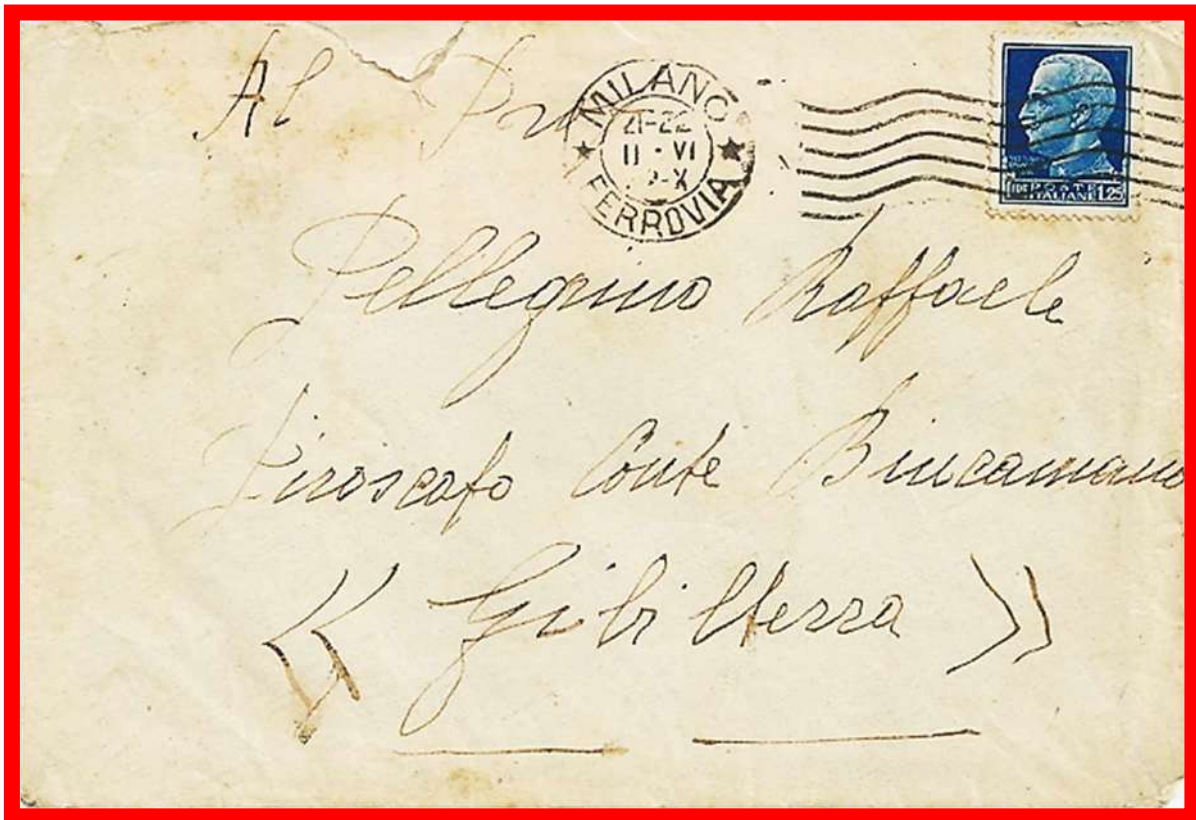 Al
MILANO
21-22
II · VI
FERROVIA
POSTE
ITALIANE 1.25
Pellegrino Raffaele
Piroscafo Conte Biancamano
« Gibilterra »